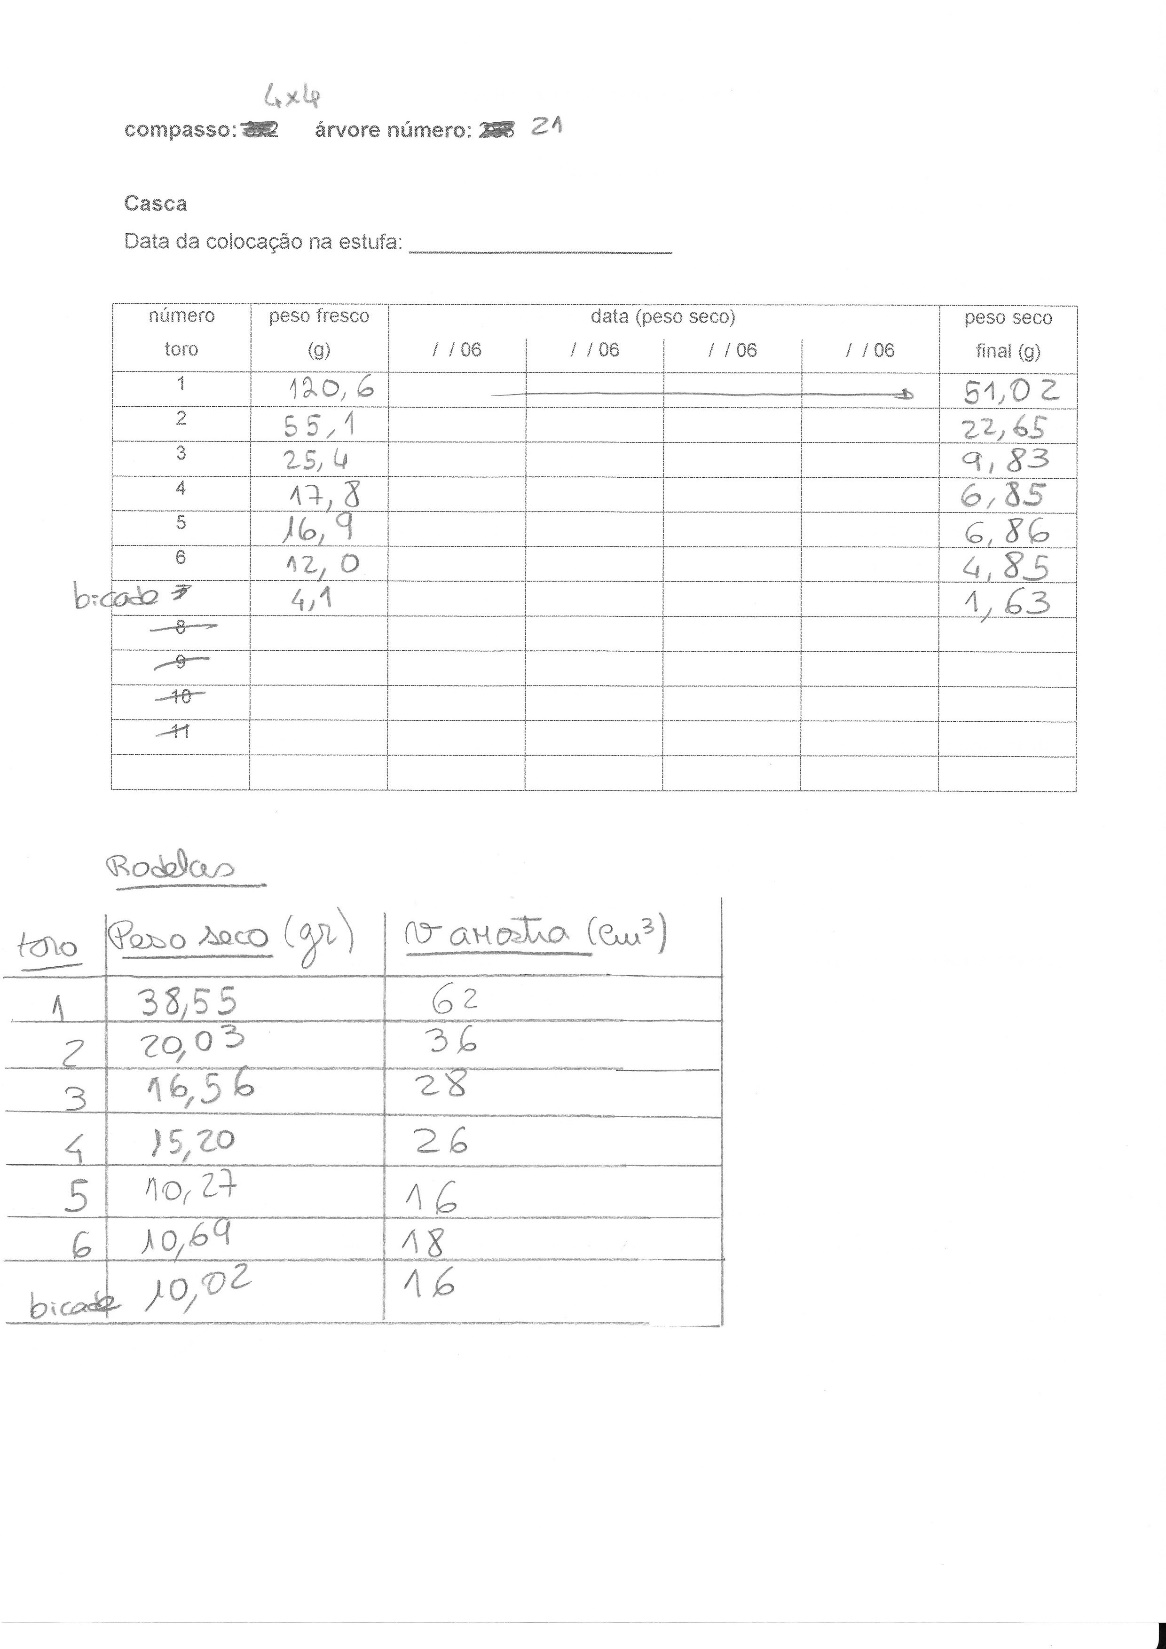 4x4
compasso: árvore número: 21
Casca
Data da colocação na estufa:
número toro peso fresco (g) data (peso seco) peso seco final (g)
/ / 06 / / 06 / / 06 / / 06
1 120,6 51,02
2 55,1 22,65
3 25,4 9,83
4 17,8 6,85
5 16,9 6,86
6 12,0 4,85
bicada 7 4,1 1,63
8
9
10
11
Rodelas
toro Peso seco (gr) V amostra (cm³)
1 38,55 62
2 20,03 36
3 16,56 28
4 15,20 26
5 10,27 16
6 10,69 18
bicada 10,02 16